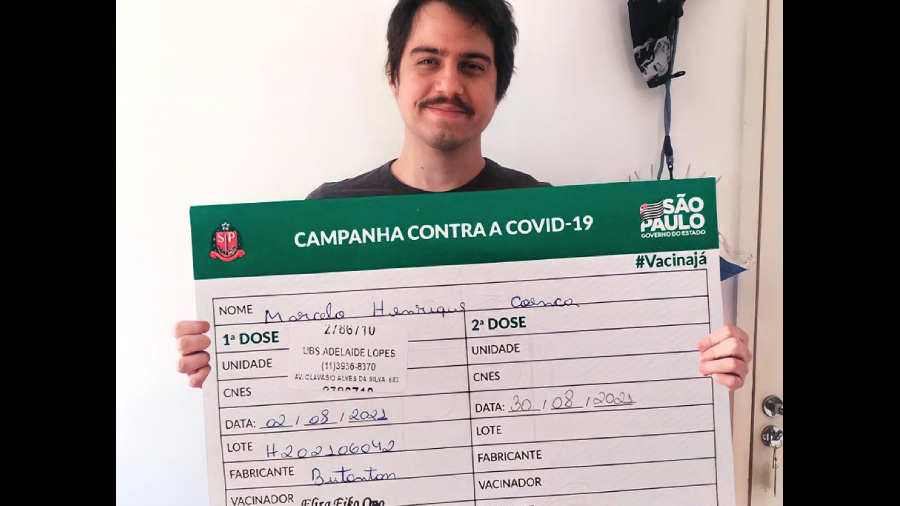 SP
CAMPANHA CONTRA A COVID-19
SÃO
PAULO
GOVERNO DO ESTADO
#Vacinajá
NOME Marcelo Henrique Coenca
1ª DOSE
2786710
UBS ADELAIDE LOPES
(11)3936-8370
AV. CLAVASIO ALVES DA SILVA, 683
2786710
UNIDADE
CNES
DATA: 02 / 08 / 2021
LOTE H202106042
FABRICANTE Butantan
VACINADOR Eliza Eiko Ono
2ª DOSE
UNIDADE
CNES
DATA: 30 / 08 / 2021
LOTE
FABRICANTE
VACINADOR